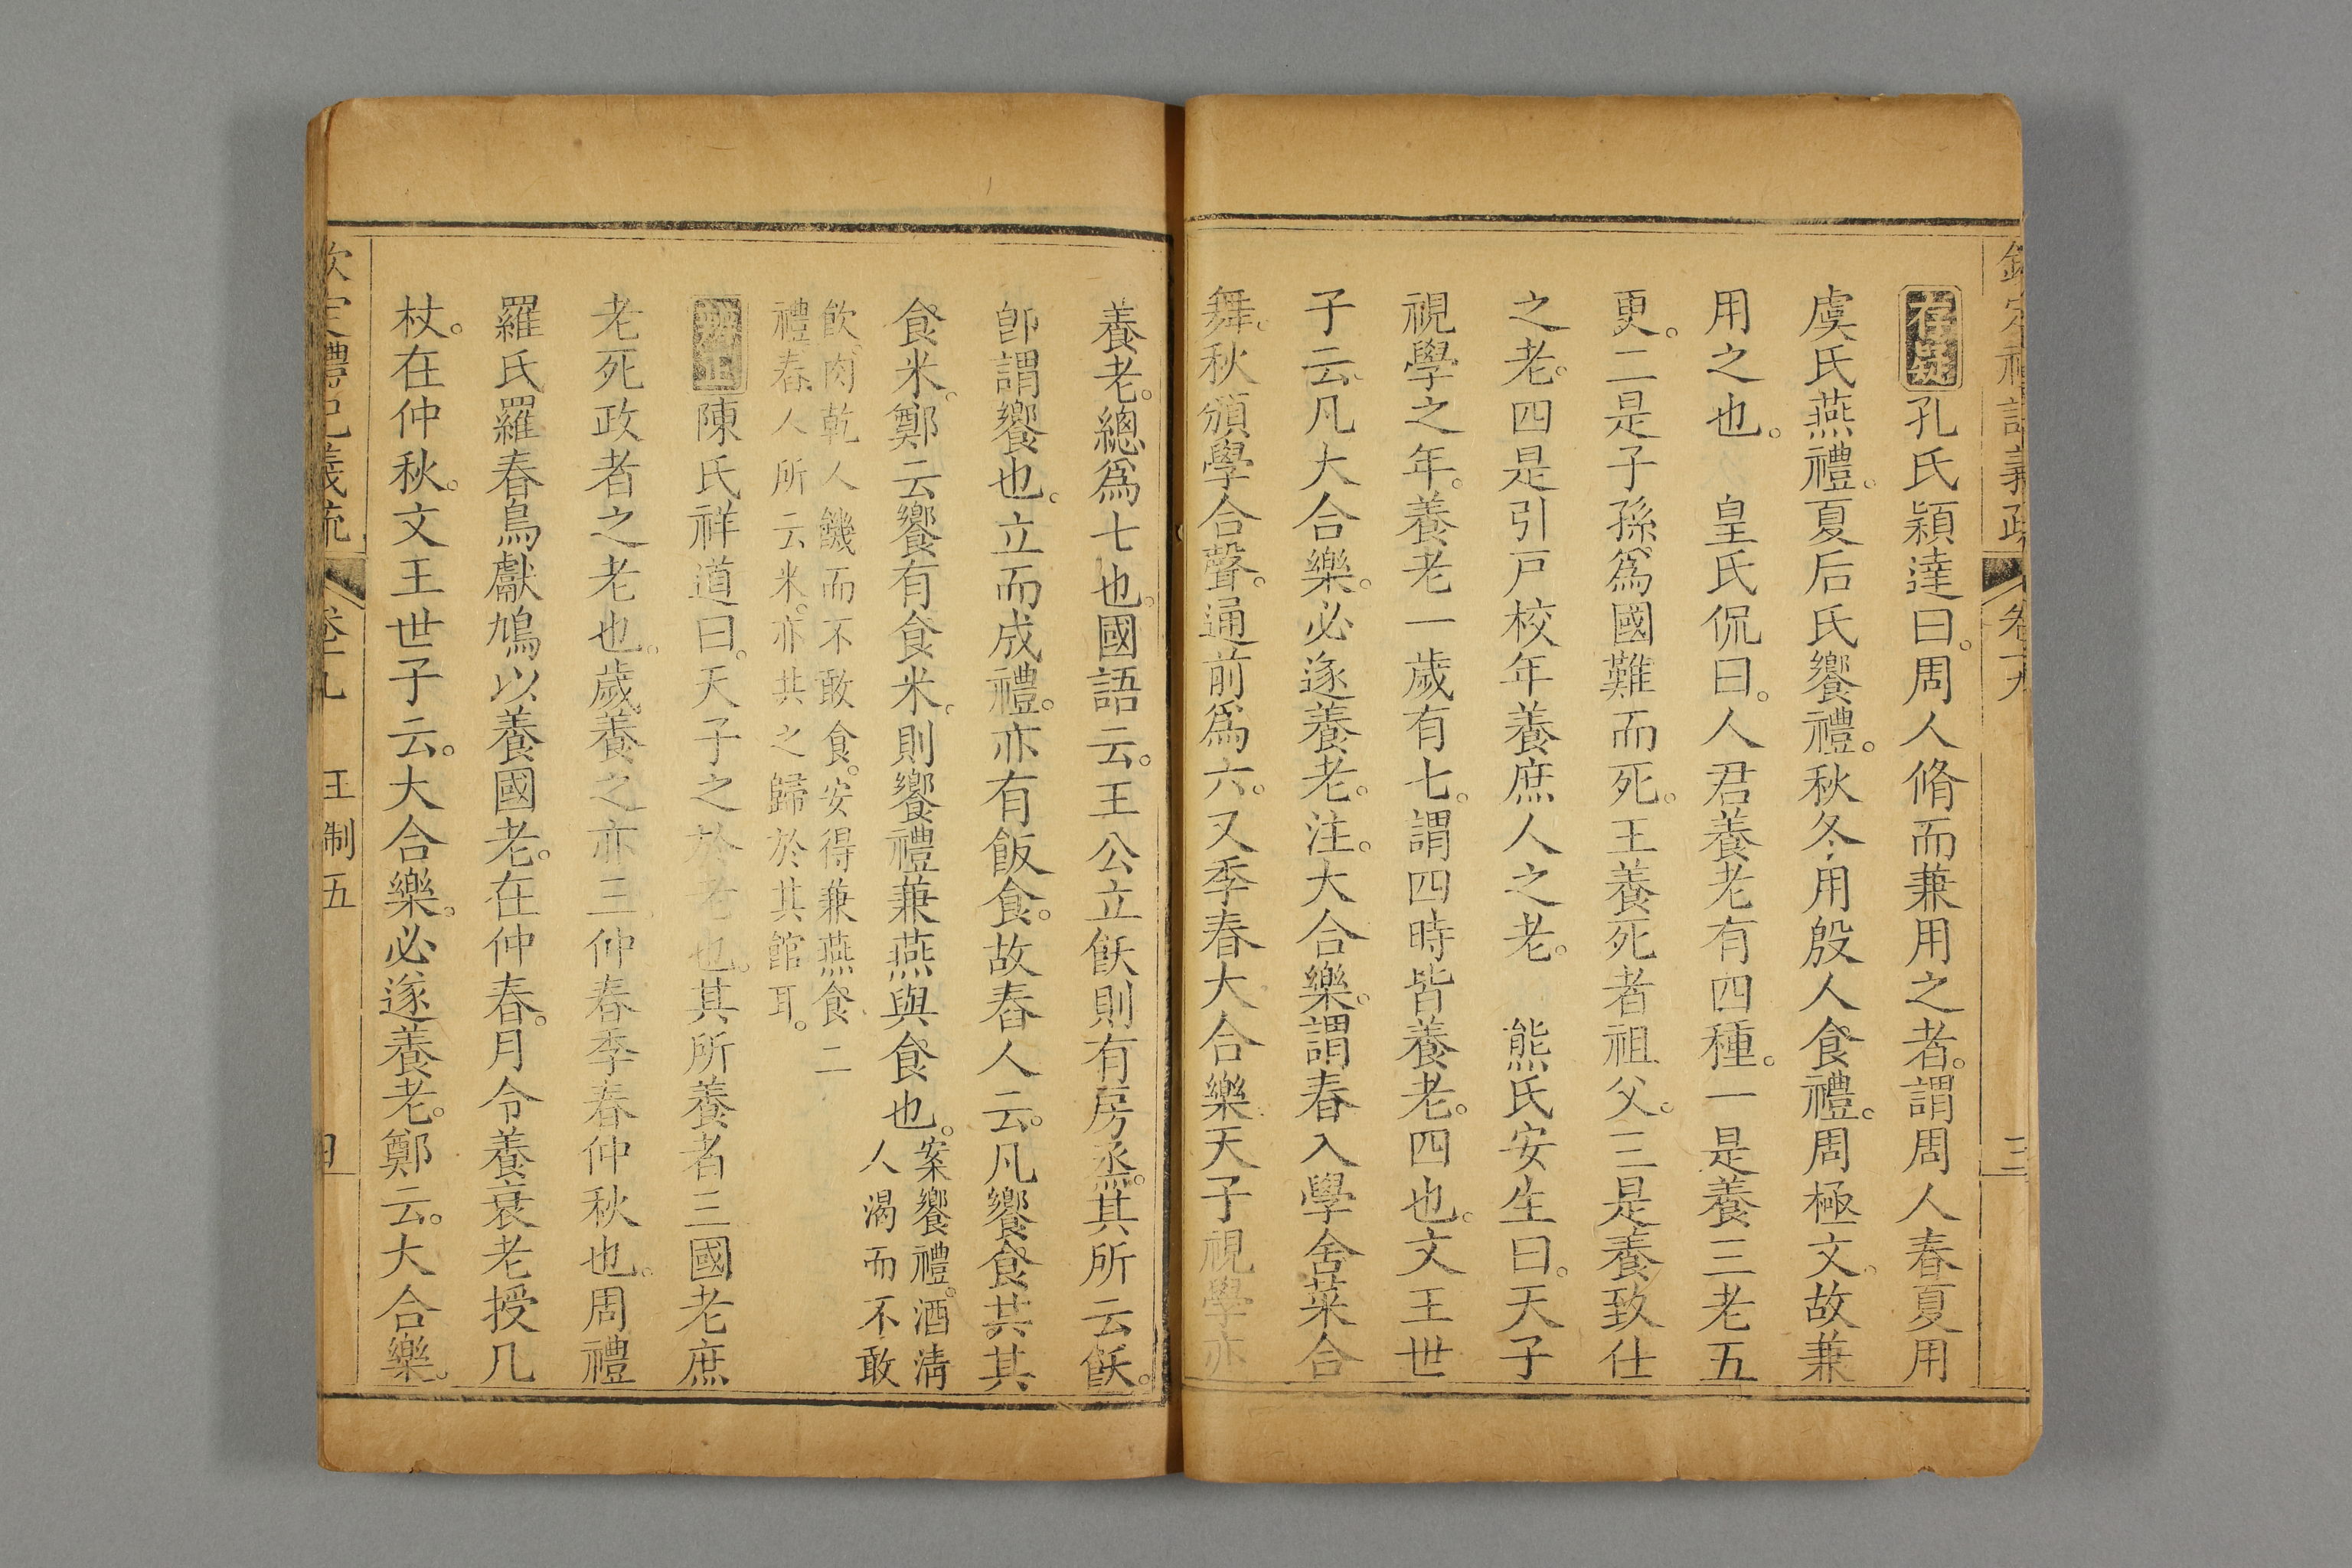 欽定禮記義疏 卷十九 三
存疑孔氏穎達曰。周人脩而兼用之者。謂周人春夏用
虞氏燕禮。夏后氏饗禮。秋冬用殷人食禮。周極文。故兼
用之也。 皇氏侃曰。人君養老有四種。一是養三老五
更。二是子孫爲國難而死。王養死者祖父。三是養致仕
之老。四是引戸校年養庶人之老。 熊氏安生曰。天子
視學之年。養老一歲有七。謂四時皆養老。四也。文王世
子云。凡大合樂。必遂養老。注。大合樂。謂春入學舍菜合
舞。秋頒學合聲。通前爲六。又季春大合樂。天子視學亦
養老。總爲七也。國語云。王公立飫則有房烝。其所云飫。
卽謂饗也。立而成禮。亦有飯食。故舂人云。凡饗食共其
食米。鄭云。饗有食米。則饗禮兼燕與食也。案饗禮。酒清
人渴而不敢
飲。肉乾人饑而不敢食。安得兼燕食二
禮。舂人所云米。亦共之歸於其館耳。
辨正陳氏祥道曰。天子之於老也。其所養者三。國老庶
老死政者之老也。歲養之亦三。仲春季春仲秋也。周禮
羅氏羅春鳥獻鳩以養國老。在仲春。月令養衰老授几
杖。在仲秋。文王世子云。大合樂。必遂養老。鄭云。大合樂。
欽定禮記義疏 卷十九 王制五